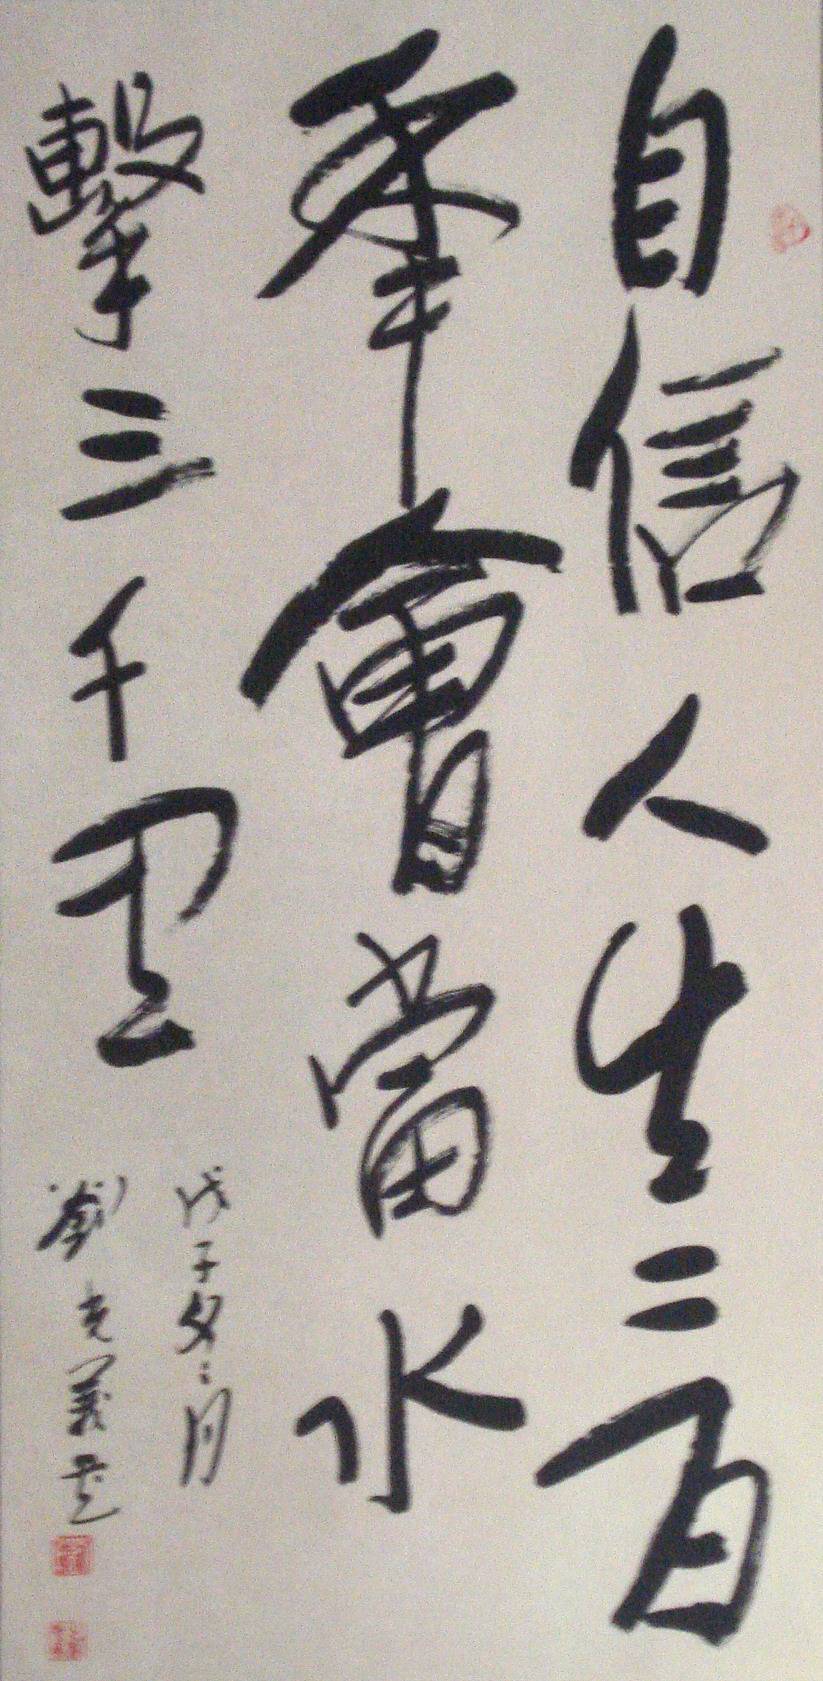 自信人生二百
秊會當水
擊三千里
戊子冬月
劉克義